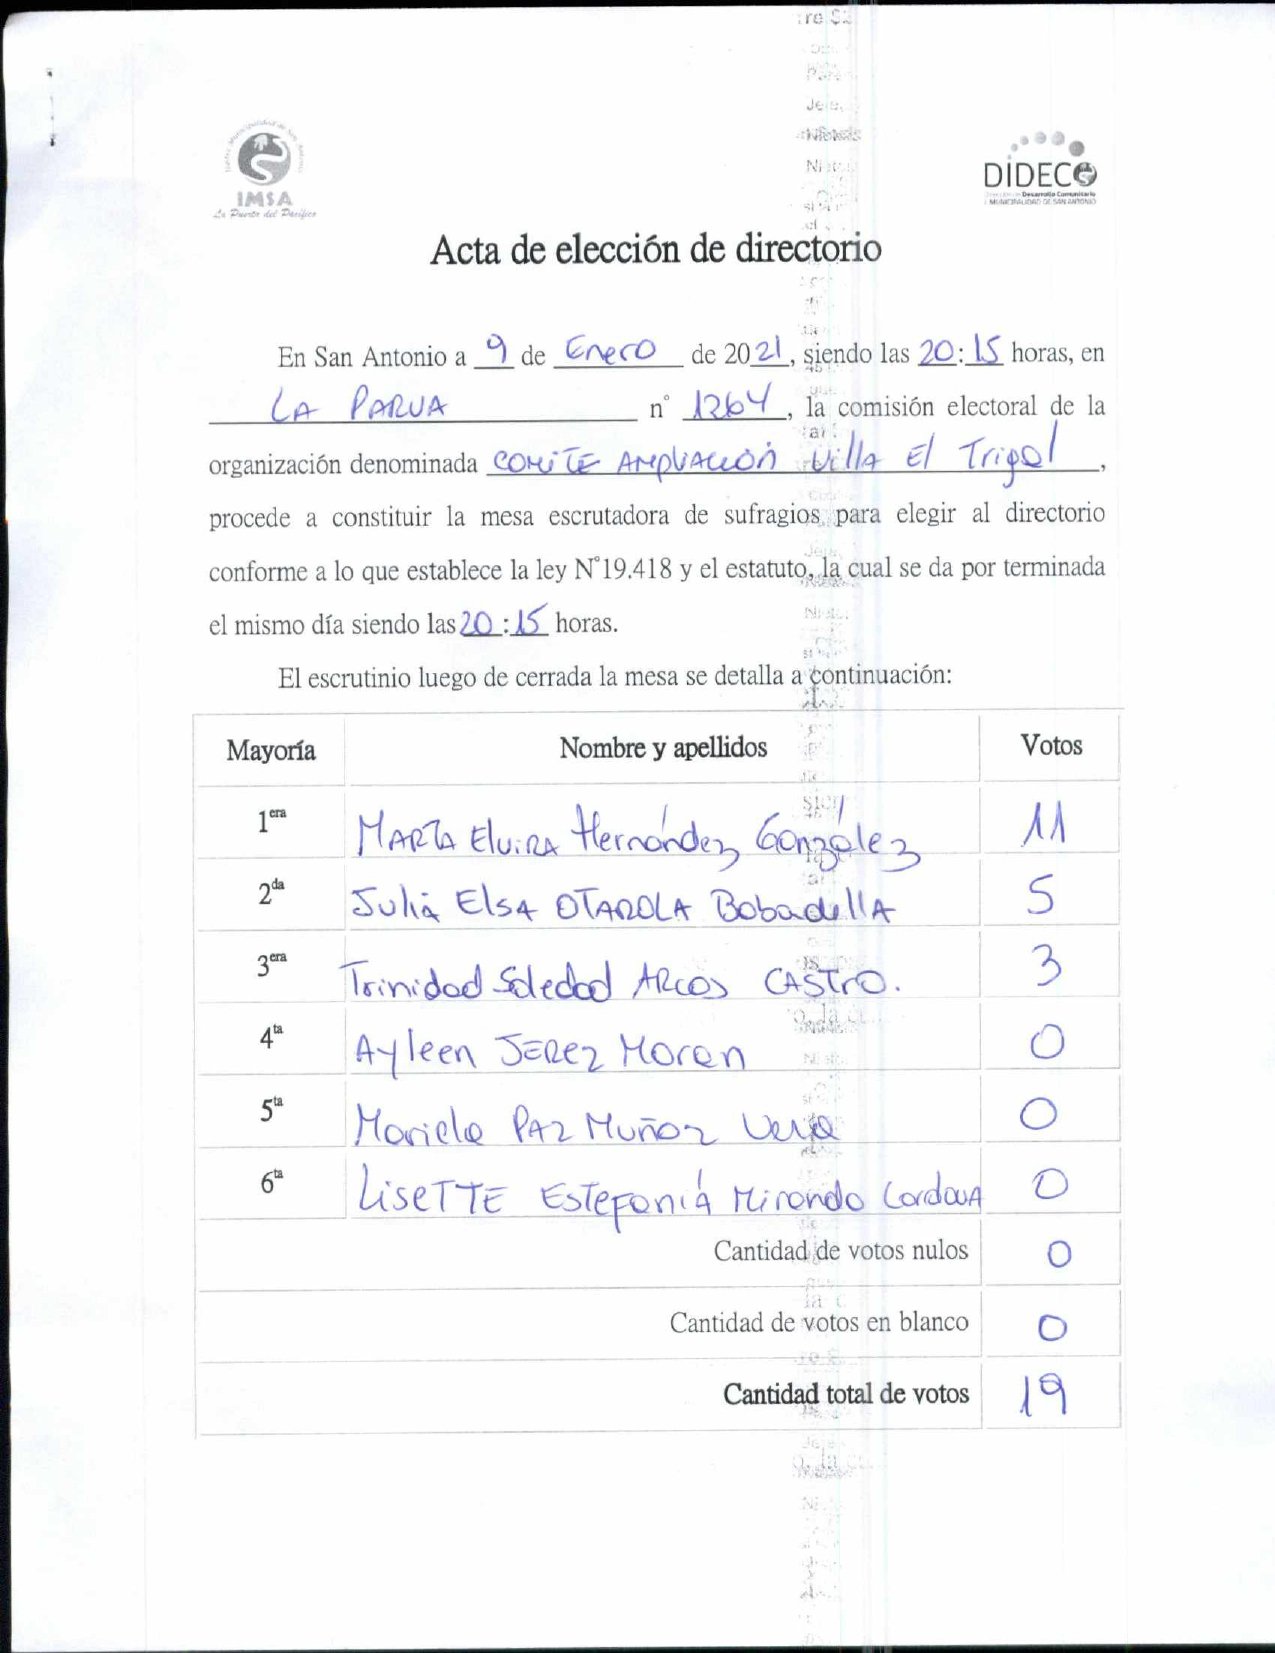 IMSA
La Puerta del Pacífico
DIDECO
Desarrollo Comunitario
MUNICIPALIDAD DE SAN ANTONIO
Acta de elección de directorio
En San Antonio a 9 de Enero de 2021, siendo las 20:15 horas, en
LA PARVA n° 1264, la comisión electoral de la
organización denominada COMITE AMPLIACIÓN Villa El Trigal,
procede a constituir la mesa escrutadora de sufragios para elegir al directorio
conforme a lo que establece la ley N°19.418 y el estatuto, la cual se da por terminada
el mismo día siendo las 20:15 horas.
El escrutinio luego de cerrada la mesa se detalla a continuación:
Mayoría Nombre y apellidos Votos
1era MARTA ElviRA Hernández González 11
2da Julia ElsA OTAROLA BobadillA 5
3era Trinidad Soledad ARCOS CASTrO. 3
4ta Ayleen JEREZ Moran 0
5ta Mariela PAZ Muñoz Vera 0
6ta LiseTTE EsTefaníA Miranda CordovA 0
Cantidad de votos nulos 0
Cantidad de votos en blanco 0
Cantidad total de votos 19